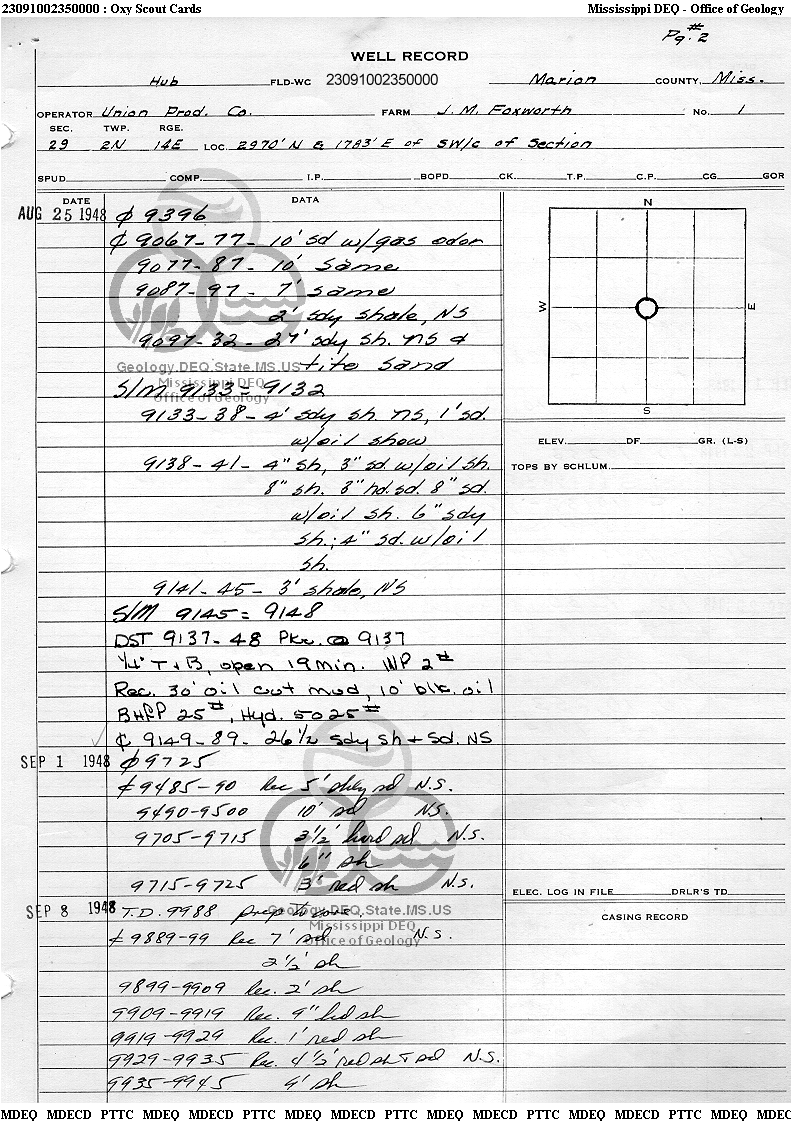 23091002350000 : Oxy Scout Cards Mississippi DEQ - Office of Geology
Pg. #2
WELL RECORD
Hub FLD-WC 23091002350000 Marion COUNTY, Miss.
OPERATOR Union Prod. Co. FARM J. M. Foxworth No. 1
SEC. TWP. RGE.
29 2N 14E LOC. 2970' N & 1783' E of SW/c of Section
SPUD COMP. I.P. BOPD CK. T.P. C.P. CG. GOR
DATE DATA
AUG 25 1948 ϕ 9396
₵ 9067-77- 10' sd w/gas odor
9077-87- 10' same
9087-97- 7' same
2' sdy shale, NS
9097-32- 27' sdy sh. NS &
tite sand
Geology.DEQ.State.MS.US
Mississippi DEQ
Office of Geology
S/M 9133 = 9132
9133-38- 4' sdy sh. NS, 1' sd.
w/oil show
9138-41- 4" sh, 3" sd. w/oil sh.
8" sh. 3" hd. sd. 8" sd.
w/oil sh. 6" sdy
sh.; 4" sd. w/oil
sh.
9141-45- 3' shale, NS
S/M 9145 = 9148
DST 9137-48 Pkr. @ 9137
1/4" T + B, open 19 min. WP 2#
Rec. 30' oil cut mud, 10' blk. oil
BHFP 25#, Hyd. 5025#
₵ 9149-89- 26 1/2 sdy sh + sd. NS
SEP 1 1948 ϕ 9725
₵ 9485-90 Rec 5' shly sd N.S.
9490-9500 10' sd NS.
9705-9715 3 1/2' hard sd N.S.
6" sh
9715-9725 3' red sh N.S.
SEP 8 1948 T.D. 9988 prep to core.
Geology.DEQ.State.MS.US
Mississippi DEQ
Office of Geology
₵ 9889-99 Rec 7' sd N.S.
2 1/2' sh
9899-9909 Rec. 2' sh
9909-9919 Rec. 9" red sh
9919-9929 Rec. 1' red sh
9929-9935 Rec. 4 1/2' red sh & sd N.S.
9935-9945 9' sh
N
W E
S
ELEV. DF. GR. (L-S)
TOPS BY SCHLUM.
ELEC. LOG IN FILE DRLR'S TD
CASING RECORD
MDEQ MDECD PTTC MDEQ MDECD PTTC MDEQ MDECD PTTC MDEQ MDECD PTTC MDEQ MDECD PTTC MDEQ MDEC